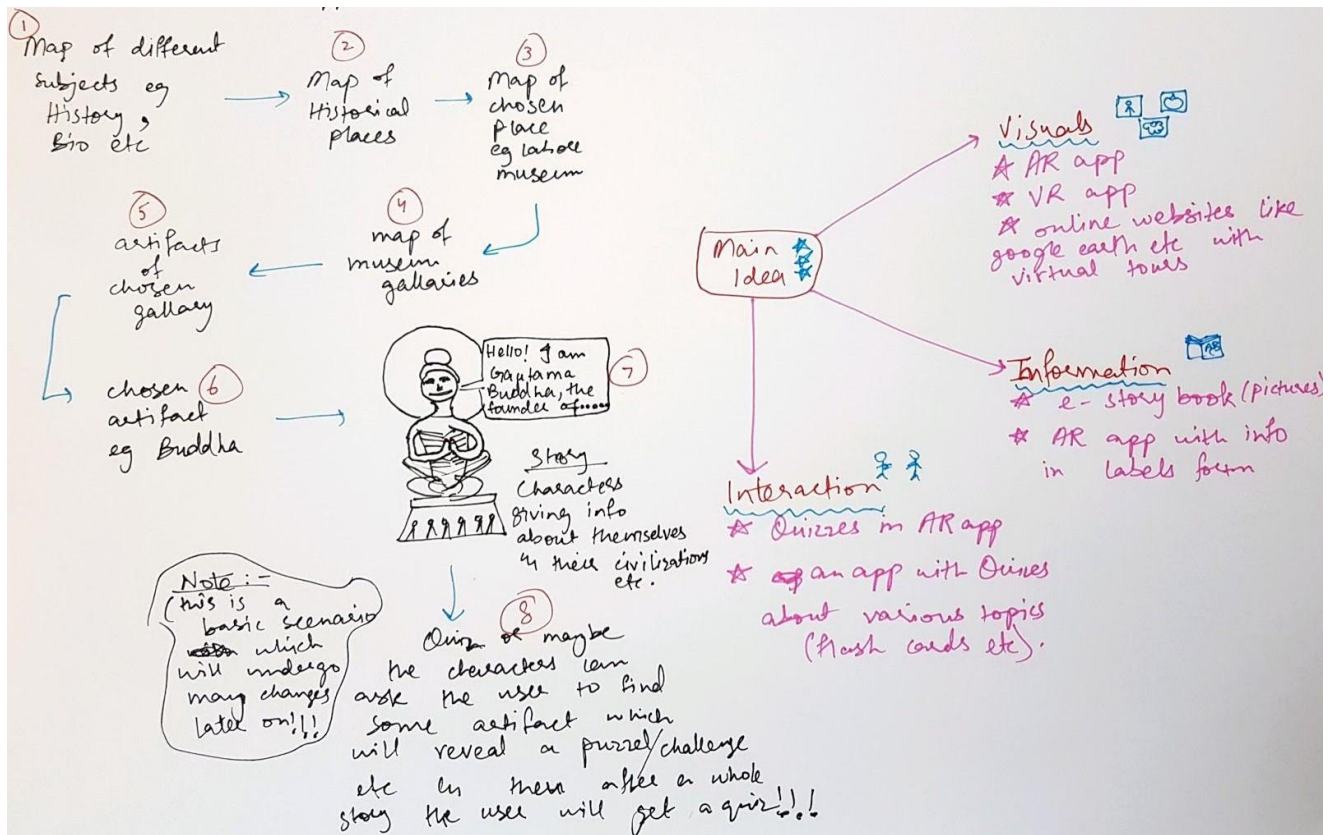 1
Map of different
subjects eg
History,
Bio etc
2
Map of
Historical
places
3
Map of
chosen
place
eg lahore
museum
4
map of
museum
gallaries
5
artifacts
of
chosen
gallary
6
chosen
artifact
eg Buddha
7
Hello! I am
Gautama
Buddha, the
founder of.....
Story
Characters
giving info
about themselves
& their civilizations
etc.
8
Quiz or maybe
the characters can
ask the user to find
some artifact which
will reveal a puzzel/challenge
etc & then after a whole
story the user will get a quiz!!!!
Note:-
this is a
basic scenario
which
will undergo
many changes
later on!!!
Main
Idea
Visuals
AR app
VR app
online websites like
google earth etc with
virtual tours
Information
e-story book (pictures)
AR app with info
in labels form
Interaction
Quizzes in AR app
an app with Quizes
about various topics
(flash cards etc).